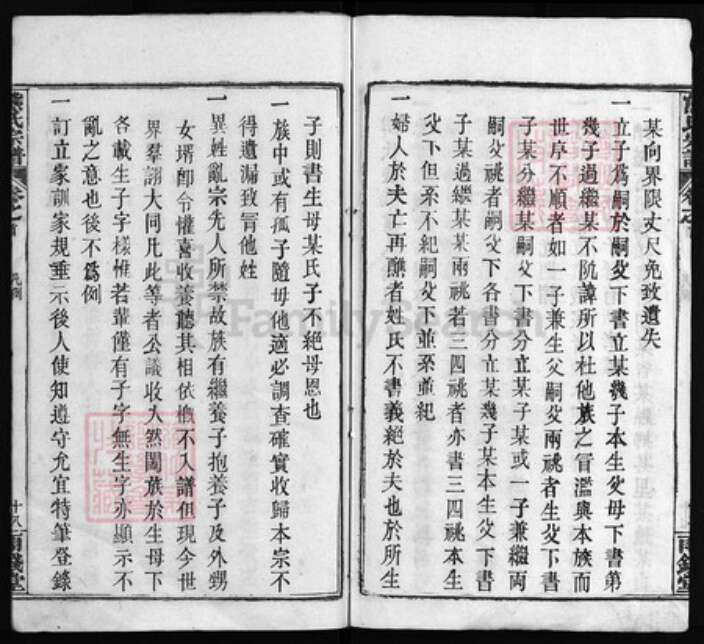 某向界限丈尺免致遺失
一立子爲嗣於嗣父下書立某幾子本生父母下書第
幾子過繼某不防諱所以杜他族之冒濫與本族而
世序不順者如一子兼生父嗣父兩祧者生父下書
子某分繼某嗣父下書分立某子某或一子兼繼兩
嗣父祧者嗣父下各書分立某幾子某本生父下書
子某過繼某某兩祧若三四祧者亦書三四祧本生
父下但系不紀嗣父下並系並紀
一婦人於夫亡再醮者姓氏不書義絕於夫也於所生
子則書生母某氏子不絕母恩也
一族中或有孤子隨母他適必調查確實收歸本宗不
得遺漏致冒他姓
一異姓亂宗先人所禁故族有繼養子抱養子及外甥
女壻卽令懽喜收養聽其相依槪不入譜但現今世
界羣詡大同凡此等者公議收入然閤族於生母下
各載生子字樣惟若輩僅有子字無生字亦顯示不
亂之意也後不爲例
一訂立家訓家規垂示後人使知遵守允宜特筆登錄
氏宗譜
卷之首
凡例
十八
FamilySearch